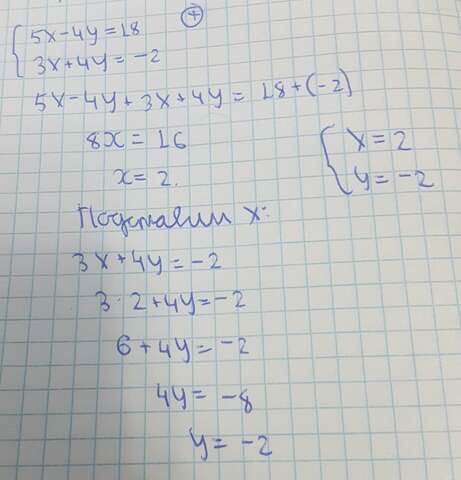 +
5x-4y=18
3x+4y=-2
5x-4y+3x+4y=18+(-2)
8x=16
x=2.
x=2
y=-2
Подставим x:
3x+4y=-2
3·2+4y=-2
6+4y=-2
4y=-8
y=-2